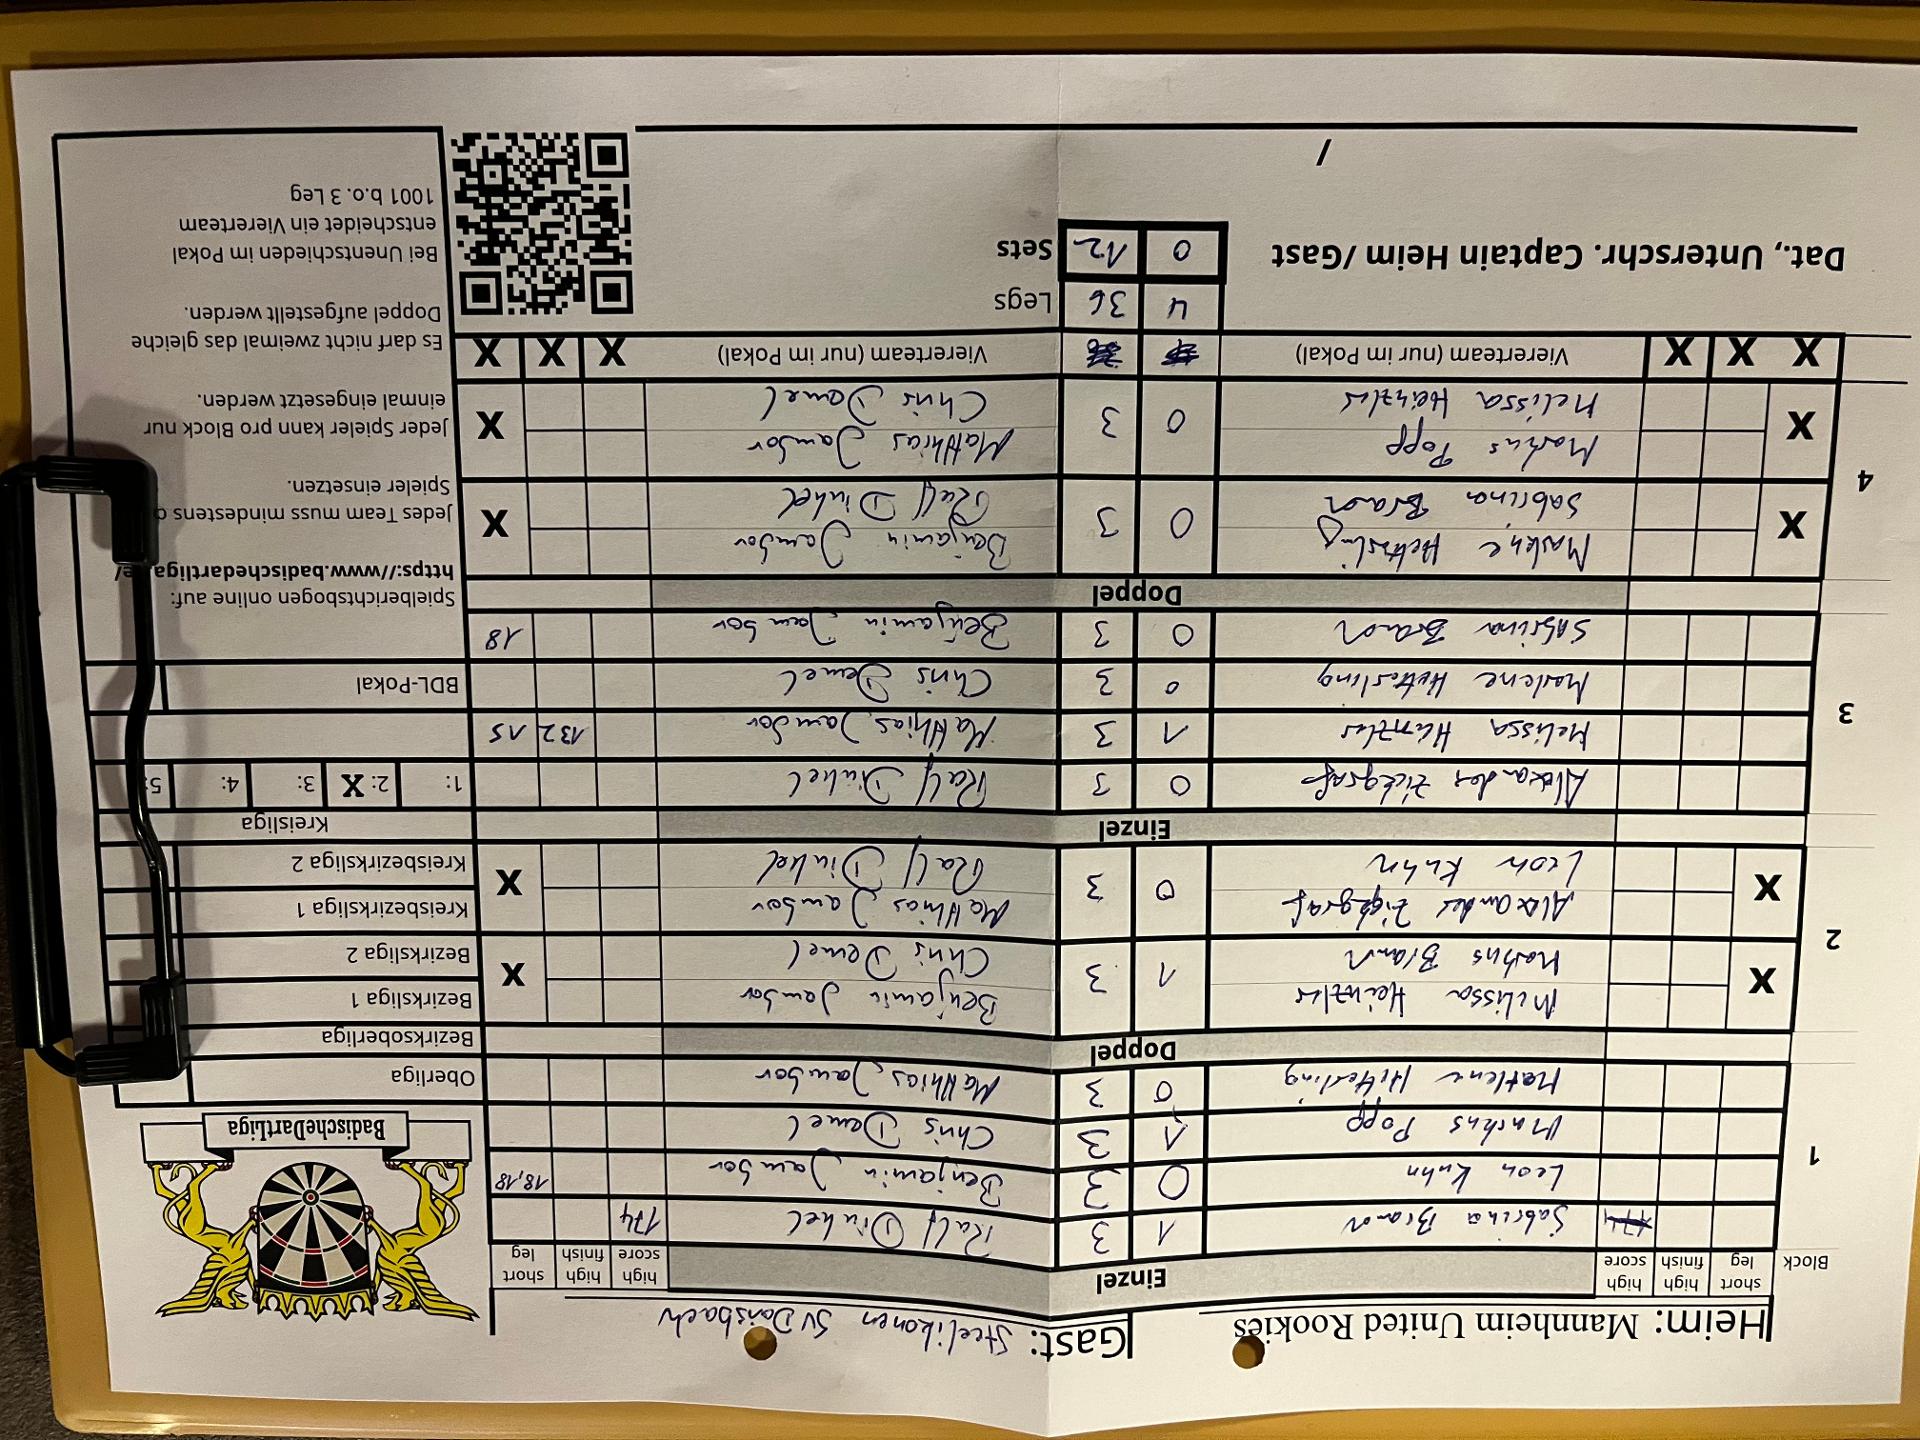 Heim: Mannheim United Rookies
Gast: Steelikonen SV Daisbach
BadischeDartLiga
Block short leg high finish high score Einzel high score high finish short leg
1
Sabrina Braun 1 3 Ralf Dinkel 174
Leon Kuhn 0 3 Benjamin Jambor 18,18
Markus Popp 1 3 Chris Demel
Marlene Hettesling 0 3 Matthias Jambor
Doppel
2
X Melissa Heinzler 1 3 Benjamin Jambor X
Markus Braun Chris Demel
X Alexander Zickgraf 0 3 Matthias Jambor X
Leon Kuhn Ralf Dinkel
Einzel
3
Alexander Zickgraf 0 3 Ralf Dinkel
Melissa Heinzler 1 3 Matthias Jambor 132 15
Marlene Hettesling 0 3 Chris Demel
Sabrina Braun 0 3 Benjamin Jambor 18
Doppel
4
X Marlene Hettesling 0 3 Benjamin Jambor X
Sabrina Braun Ralf Dinkel
X Markus Popp 0 3 Matthias Jambor X
Melissa Heinzler Chris Demel
X X X Viererteam (nur im Pokal) Viererteam (nur im Pokal) X X X
4 36 Legs
0 12 Sets
Dat., Unterschr. Captain Heim/Gast
/
Oberliga
Bezirksoberliga
Bezirksliga 1
Bezirksliga 2
Kreisbezirksliga 1
Kreisbezirksliga 2
Kreisliga
1: 2: X 3: 4: 5:
BDL-Pokal
Spielberichtsbogen online auf:
https://www.badischedartliga.de/
Jedes Team muss mindestens
Spieler einsetzen.
Jeder Spieler kann pro Block nur
einmal eingesetzt werden.
Es darf nicht zweimal das gleiche
Doppel aufgestellt werden.
Bei Unentschieden im Pokal
entscheidet ein Viererteam
1001 b.o. 3 Leg